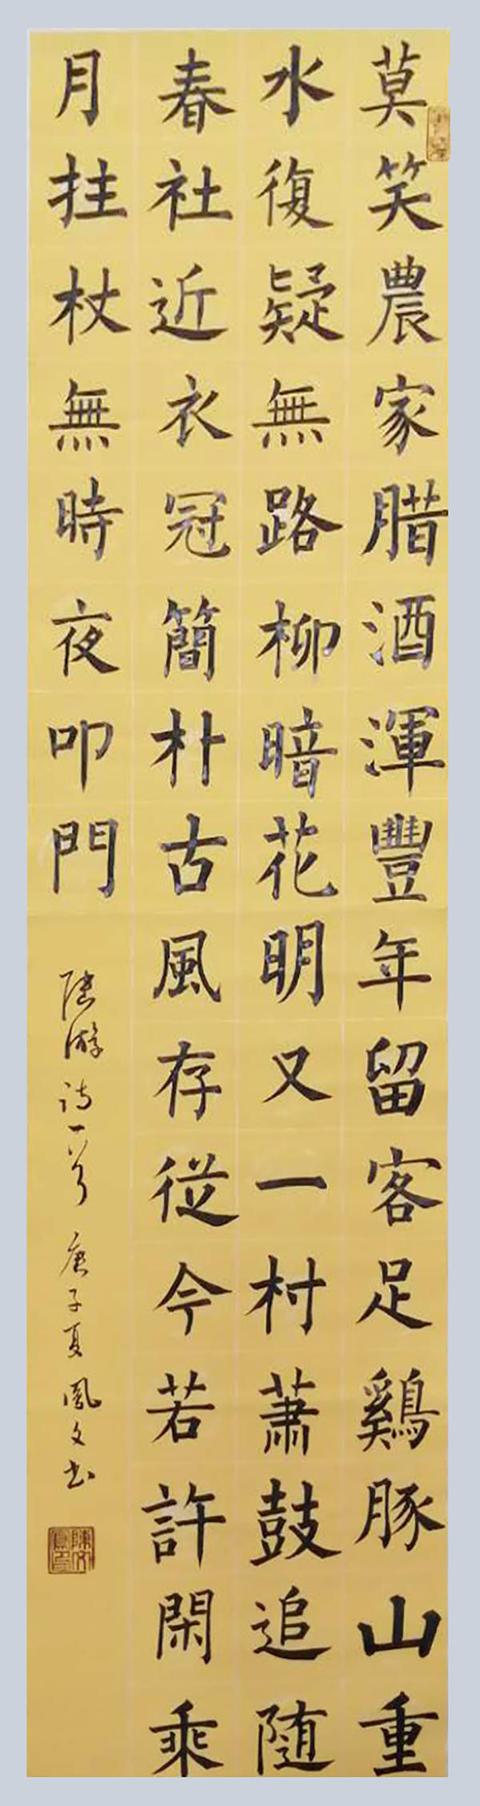 莫笑農家腊酒渾豐年留客足鷄豚山重
水復疑無路柳暗花明又一村蕭鼓追随
春社近衣冠簡朴古風存從今若許閑乘
月拄杖無時夜叩門
陸游詩一首 庚子夏 鳳文书